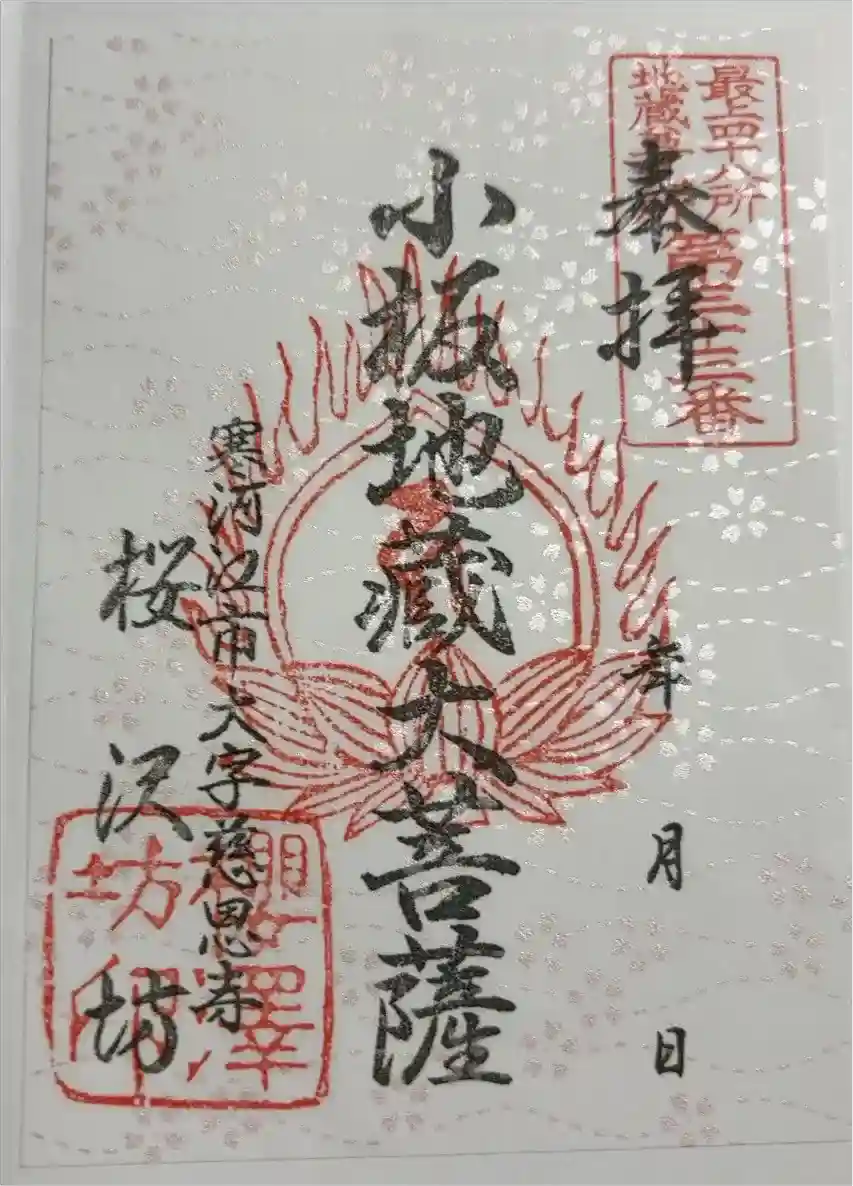 最上四十八所
地蔵
第三十三番
奉拝
年 月 日
小板地蔵大菩薩
寒河江市大字慈恩寺
桜沢坊
櫻澤
坊印